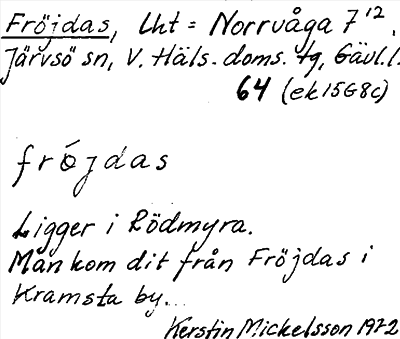 Fröjdas, Lht = Norrvåga 7¹².
Järvsö sn, V. Häls. doms. tg, Gävl. l.
64 (ek 15G8c)
fröjdas
Ligger i Rödmyra.
Man kom dit från Fröjdas i
Kramsta by...
Kerstin Mickelsson 1972